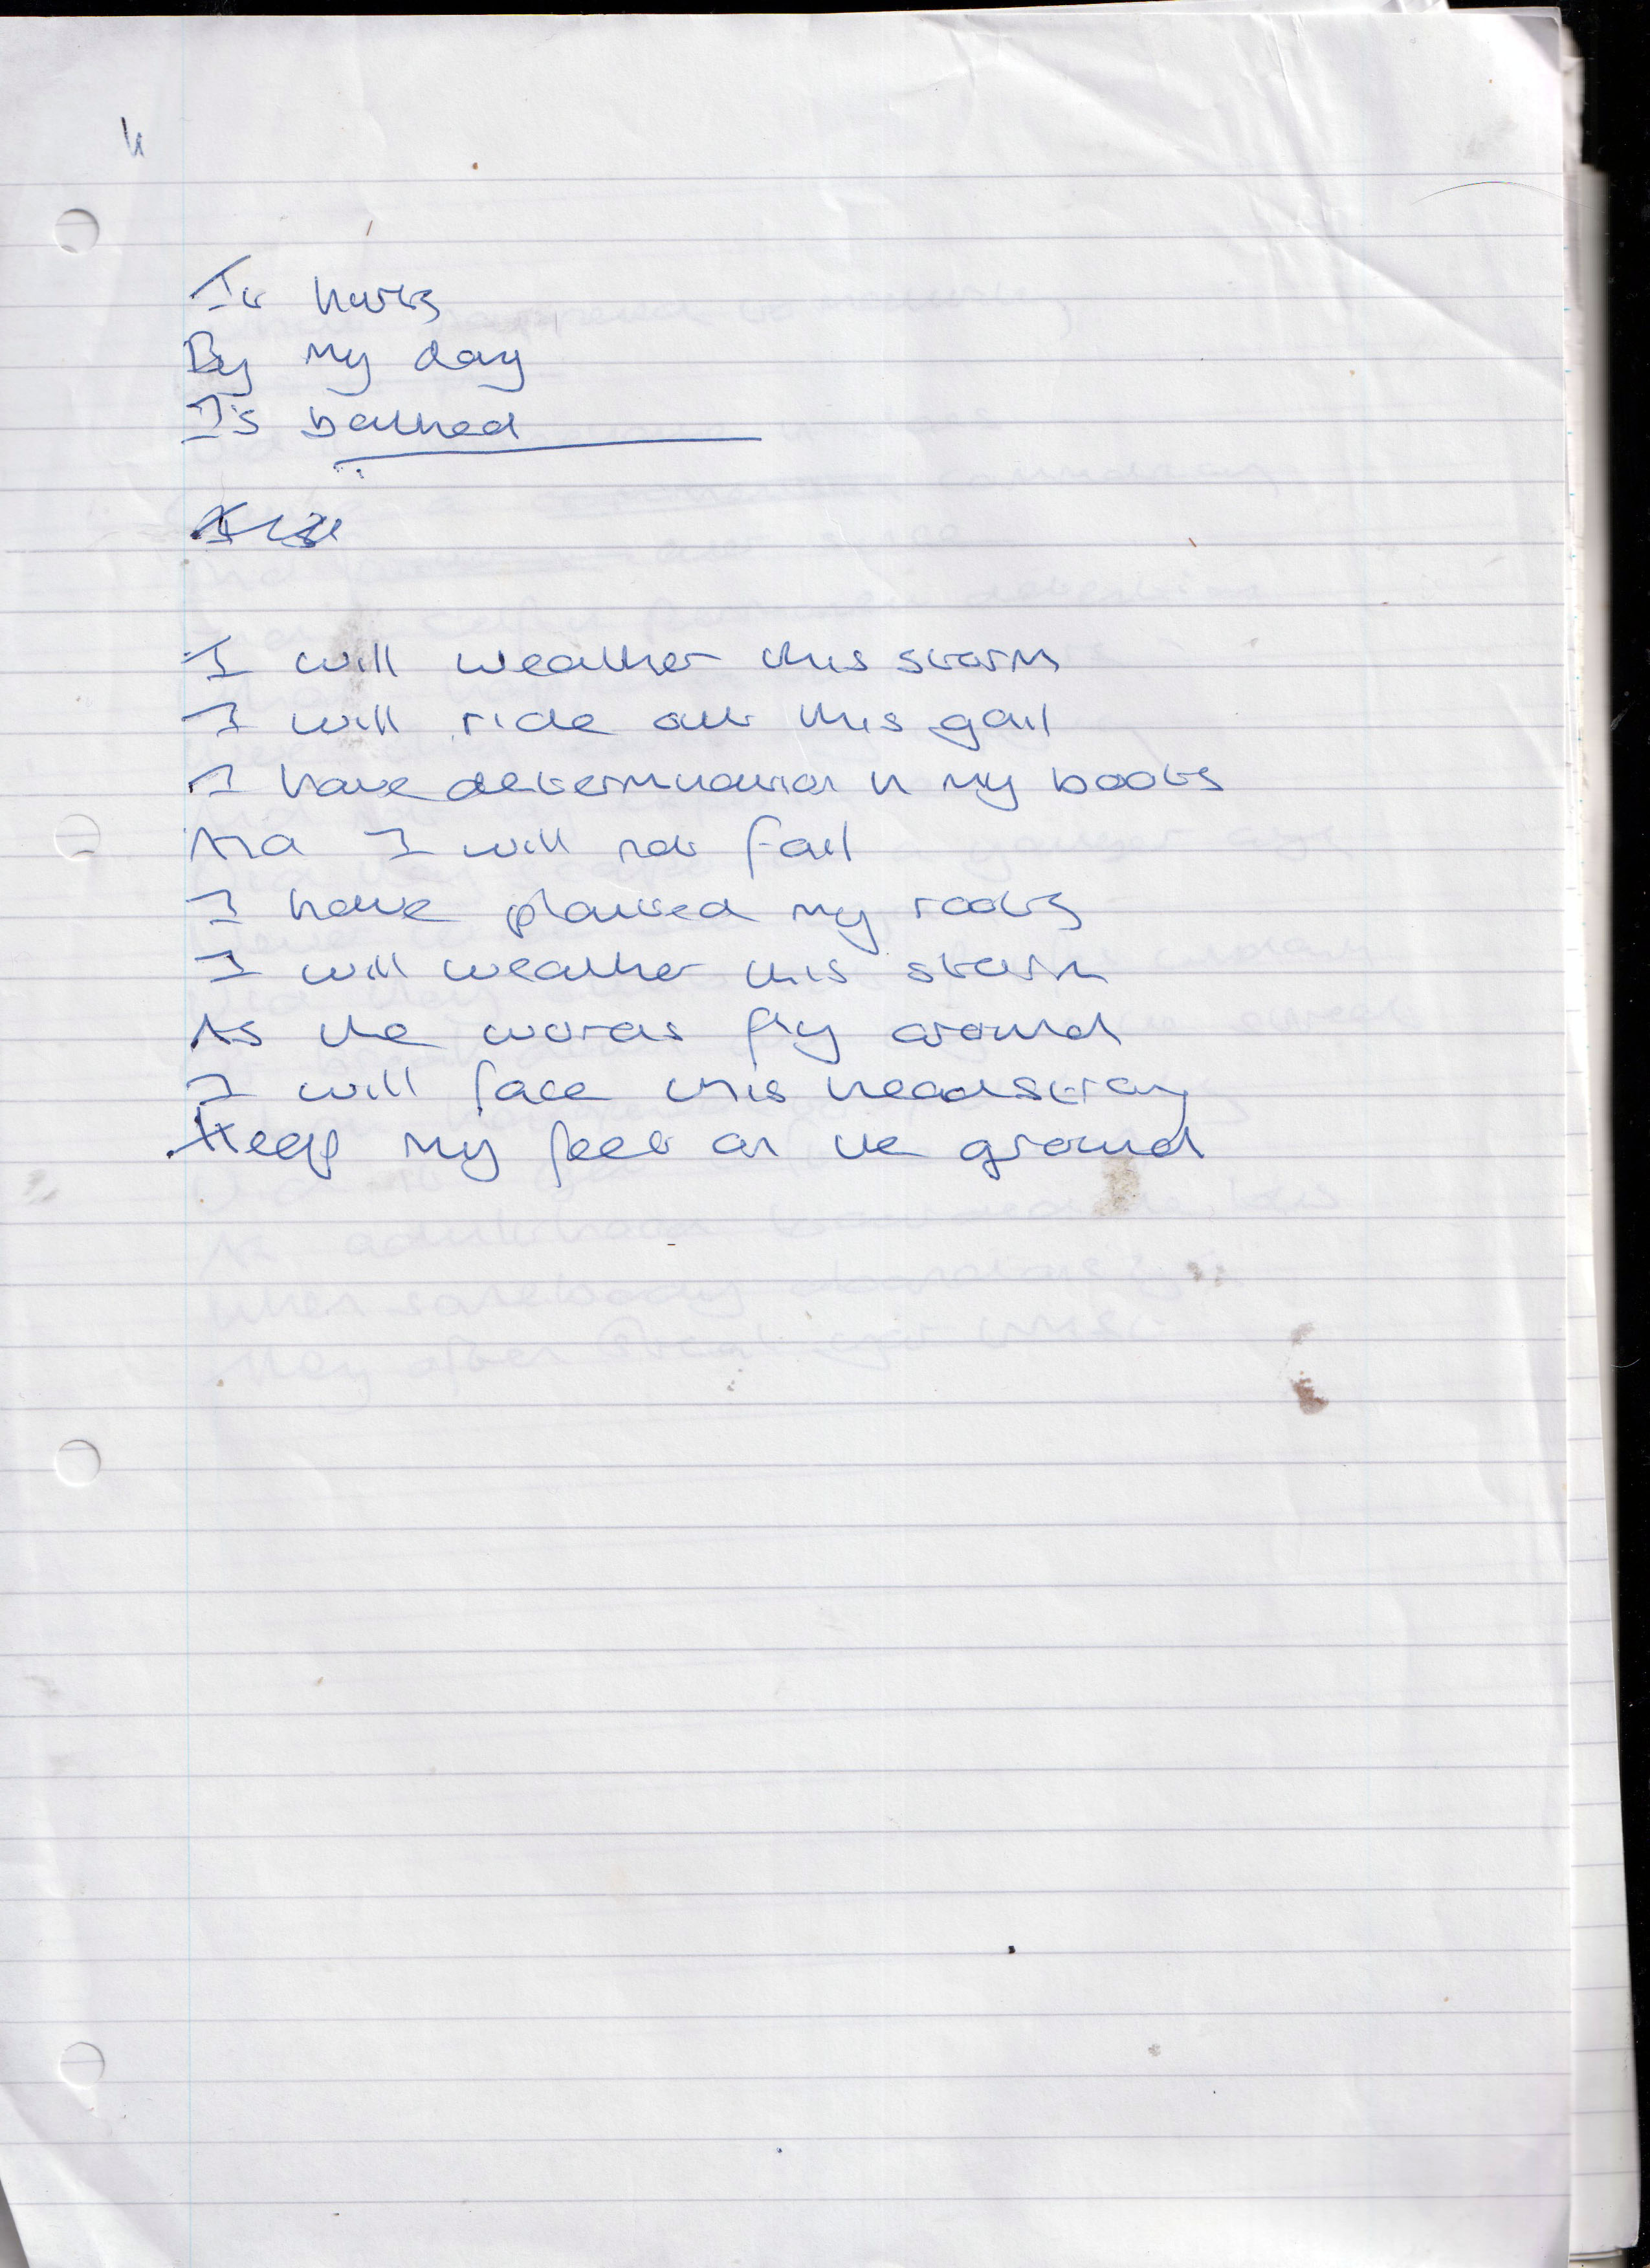 It hurts
By my day
Is bathed
I will weather this storm
I will ride out this gail
I have determination in my boots
And I will not fail
I have planted my roots
I will weather this storm
As the words fly around
I will face this headstrong
Keep my feet on the ground